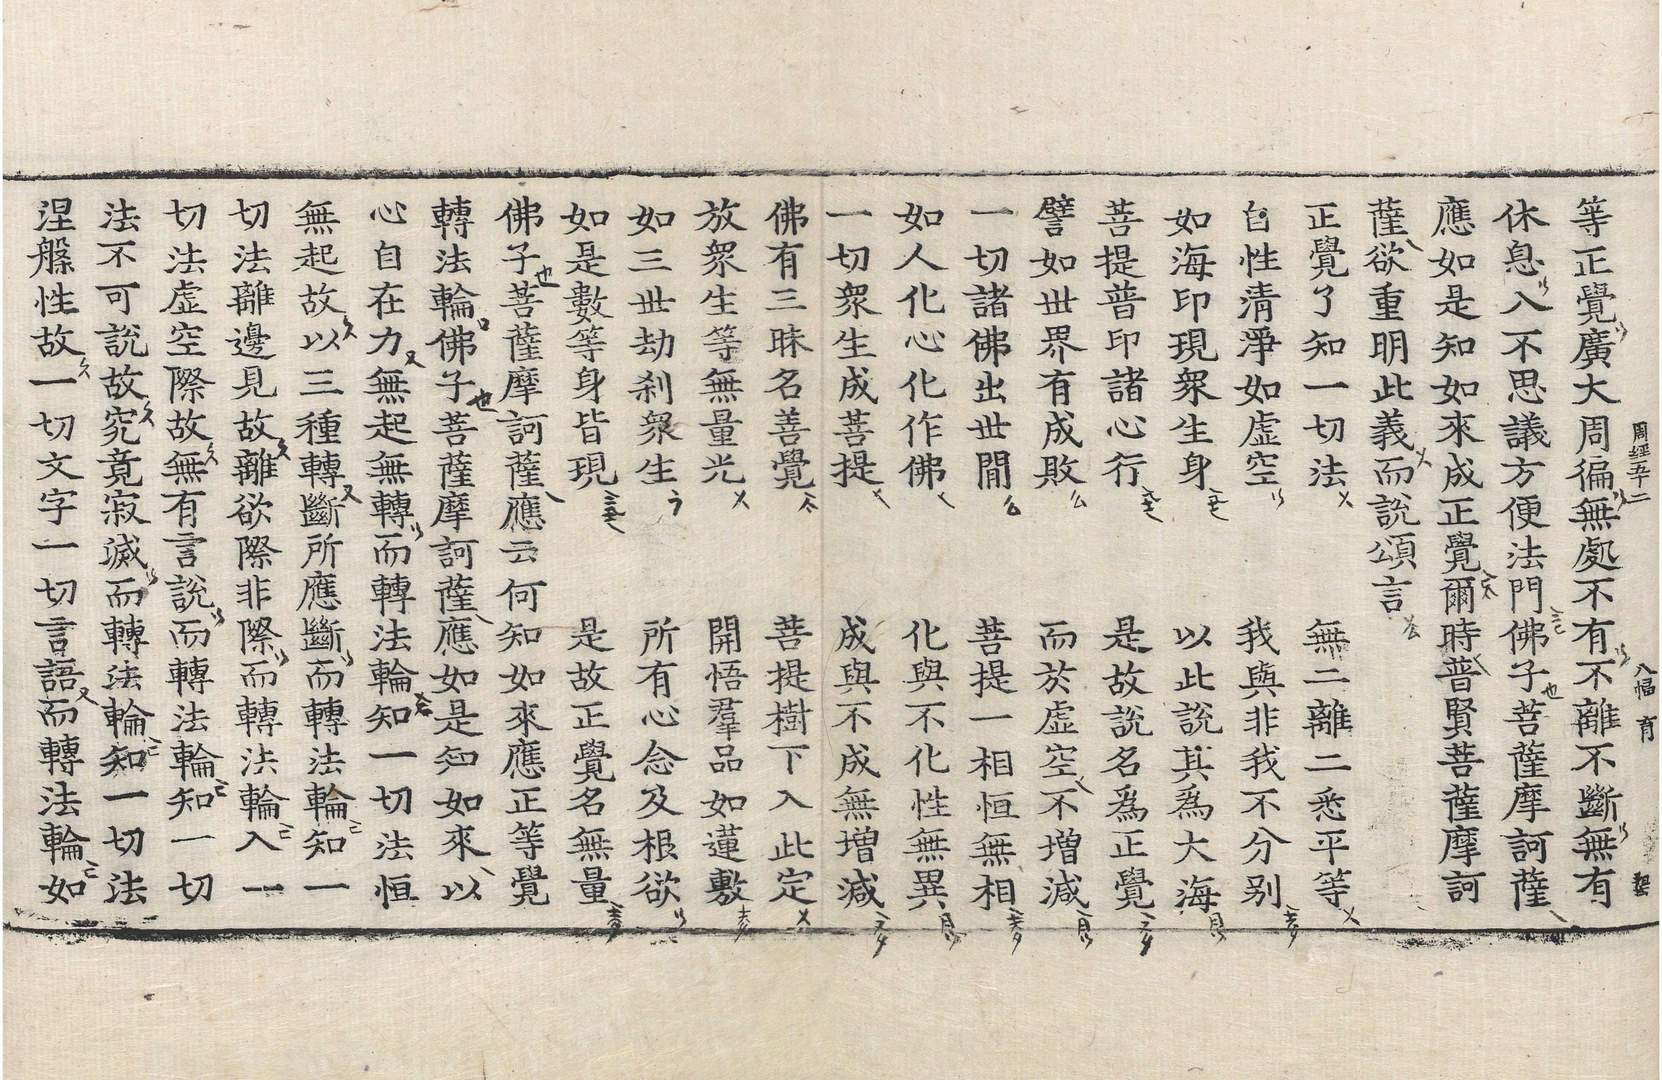 周經五十二 八幅 育
等正覺廣大周徧無處不有不離不斷無有
休息入不思議方便法門佛子菩薩摩訶薩
應如是知如來成正覺爾時普賢菩薩摩訶
薩欲重明此義而說頌言
正覺了知一切法 無二離二悉平等
自性清淨如虛空 我與非我不分別
如海印現衆生身 以此說其爲大海
菩提普印諸心行 是故說名爲正覺
譬如世界有成敗 而於虛空不增減
一切諸佛出世閒 菩提一相恒無相
如人化心化作佛 化與不化性無異
一切衆生成菩提 成與不成無增減
佛有三昧名善覺 菩提樹下入此定
放衆生等無量光 開悟羣品如蓮敷
如三世劫刹衆生 所有心念及根欲
如是數等身皆現 是故正覺名無量
佛子菩薩摩訶薩應云何知如來應正等覺
轉法輪佛子菩薩摩訶薩應如是知如來以
心自在力無起無轉而轉法輪知一切法恒
無起故以三種轉斷所應斷而轉法輪知一
切法離邊見故離欲際非際而轉法輪入一
切法虛空際故無有言說而轉法輪知一切
法不可說故究竟寂滅而轉法輪知一切法
涅槃性故一切文字一切言語而轉法輪如